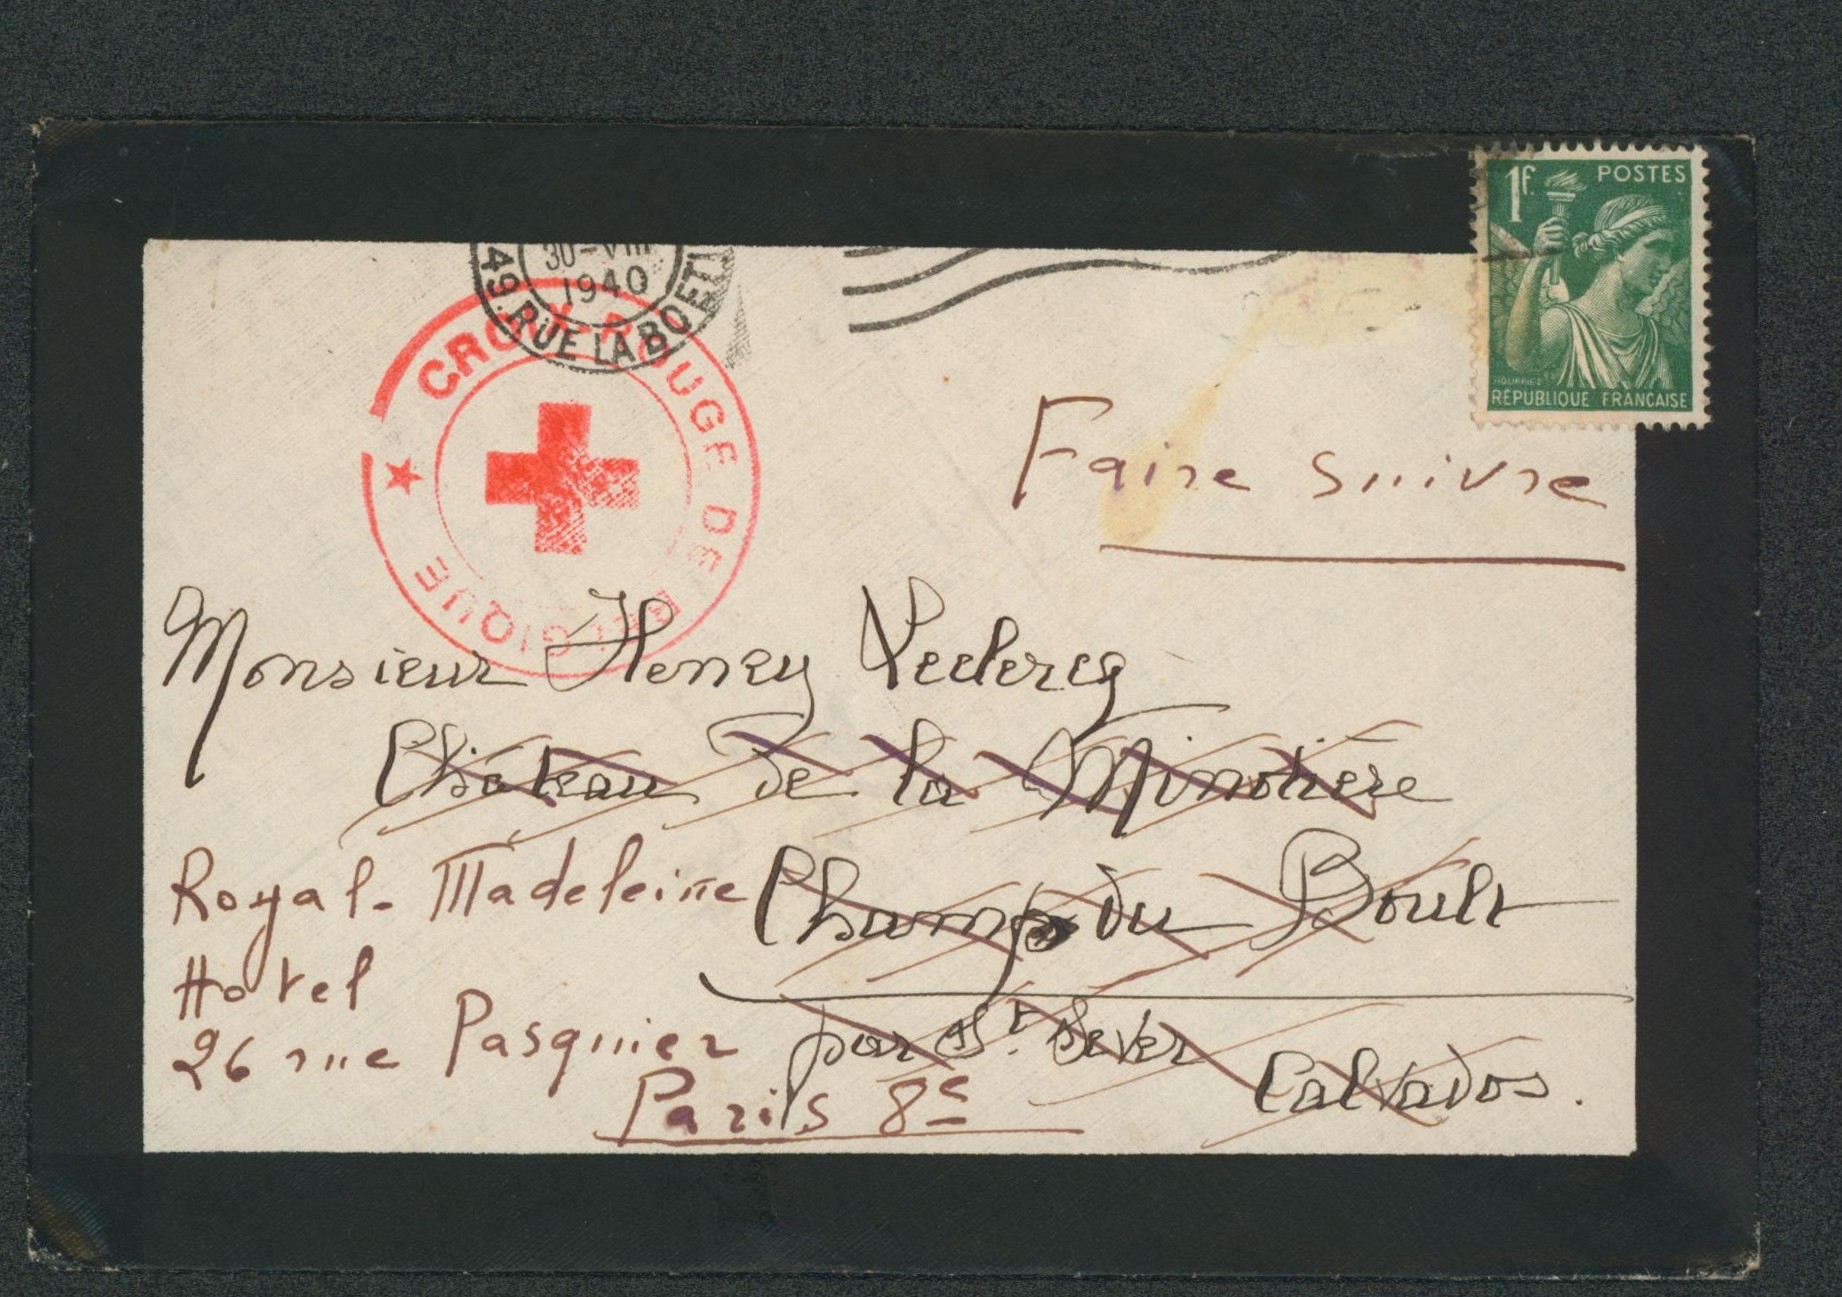 1f. POSTES
HOURRIEZ
RÉPUBLIQUE FRANÇAISE
30-VIII
1940
49. RUE LA BOETI
CROIX-ROUGE DE BELGIQUE
Faire suivre
Monsieur Henry Leclercq
Château de la Minotière
Champ du Boult
par St. Sever
Calvados.
Royal-Madeleine
Hotel
26 rue Pasquier
Paris 8e